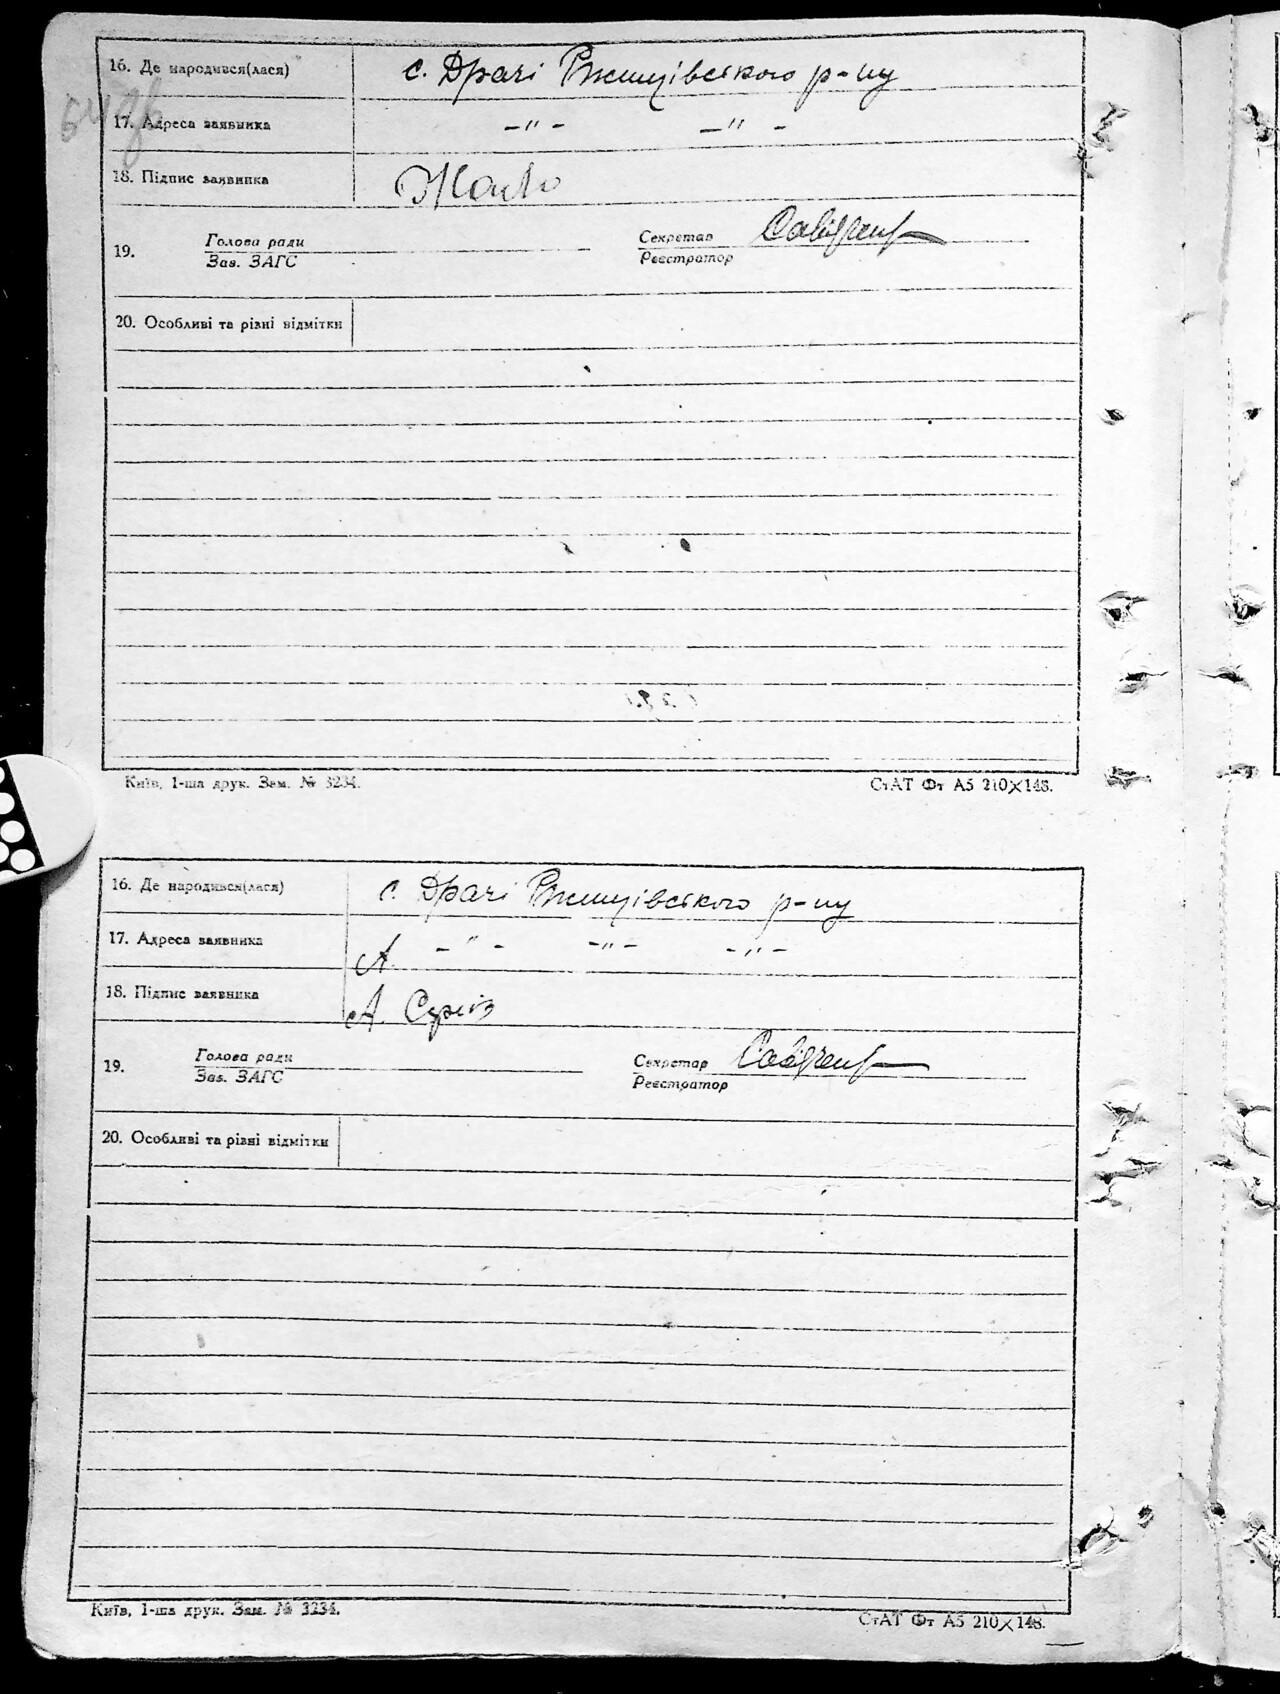 16. Де народився(лася) с. Драчі Ржищівського р-ну
17. Адреса заявника -"- -"-
18. Підпис заявника
19. Голова ради Секретар
Зав. ЗАГС Реєстратор
20. Особливі та різні відмітки
Київ, 1-ша друк. Зам. № 3234. СтАТ Фт А5 210×148.
16. Де народився(лася) с. Драчі Ржищівського р-ну
17. Адреса заявника А. -"- -"- -"-
18. Підпис заявника А.
19. Голова ради Секретар
Зав. ЗАГС Реєстратор
20. Особливі та різні відмітки
Київ, 1-ша друк. Зам. № 3234. СтАТ Фт А5 210×148.